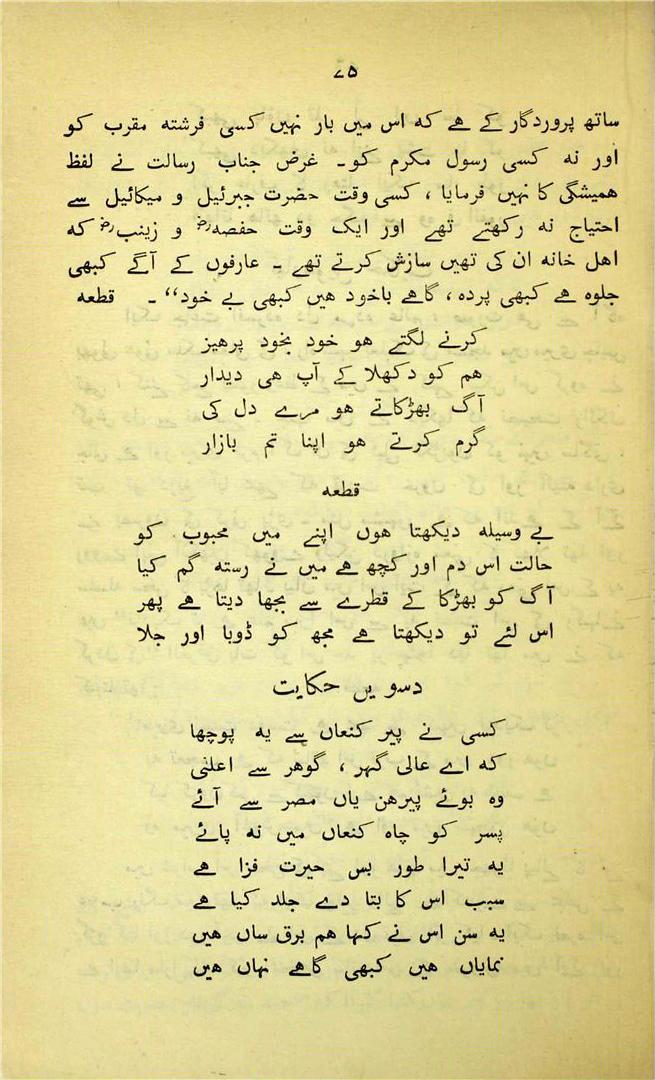 ۷۵
ساتھ پروردگار کے ہے کہ اس میں بار نہیں کسی فرشتہ مقرب کو
اور نہ کسی رسول مکرم کو۔ غرض جناب رسالت نے لفظ
ہمیشگی کا نہیں فرمایا ، کسی وقت حضرت جبرئیل و میکائیل سے
احتیاج نہ رکھتے تھے اور ایک وقت حفصہ رض و زینب رض کہ
اھل خانہ ان کی تھیں سازش کرتے تھے ۔ عارفوں کے آگے کبھی
جلوہ ہے کبھی پردہ ، گاہے باخود ھیں کبھی بے خود“ ۔ قطعہ
کرنے لگتے ھو خود بخود پرھیز
ھم کو دکھلا کے آپ ھی دیدار
آگ بھڑکاتے ھو مرے دل کی
گرم کرتے ھو اپنا تم بازار
قطعہ
بے وسیلہ دیکھتا ھوں اپنے میں محبوب کو
حالت اس دم اور کچھ ہے میں نے رستہ گم کیا
آگ کو بھڑکا کے قطرے سے بجھا دیتا ہے پھر
اس لئے تو دیکھتا ہے مجھ کو ڈوبا اور جلا
دسویں حکایت
کسی نے پیر کنعاں سے یہ پوچھا
کہ اے عالی گہر ، گوھر سے اعلیٰ
وہ بوئے پیرھن یاں مصر سے آئے
پسر کو چاہ کنعاں میں نہ پائے
یہ تیرا طور بس حیرت فزا ہے
سبب اس کا بتا دے جلد کیا ہے
یہ سن اس نے کہا ھم برق ساں ھیں
نمایاں ھیں کبھی گاہے نہاں ھیں